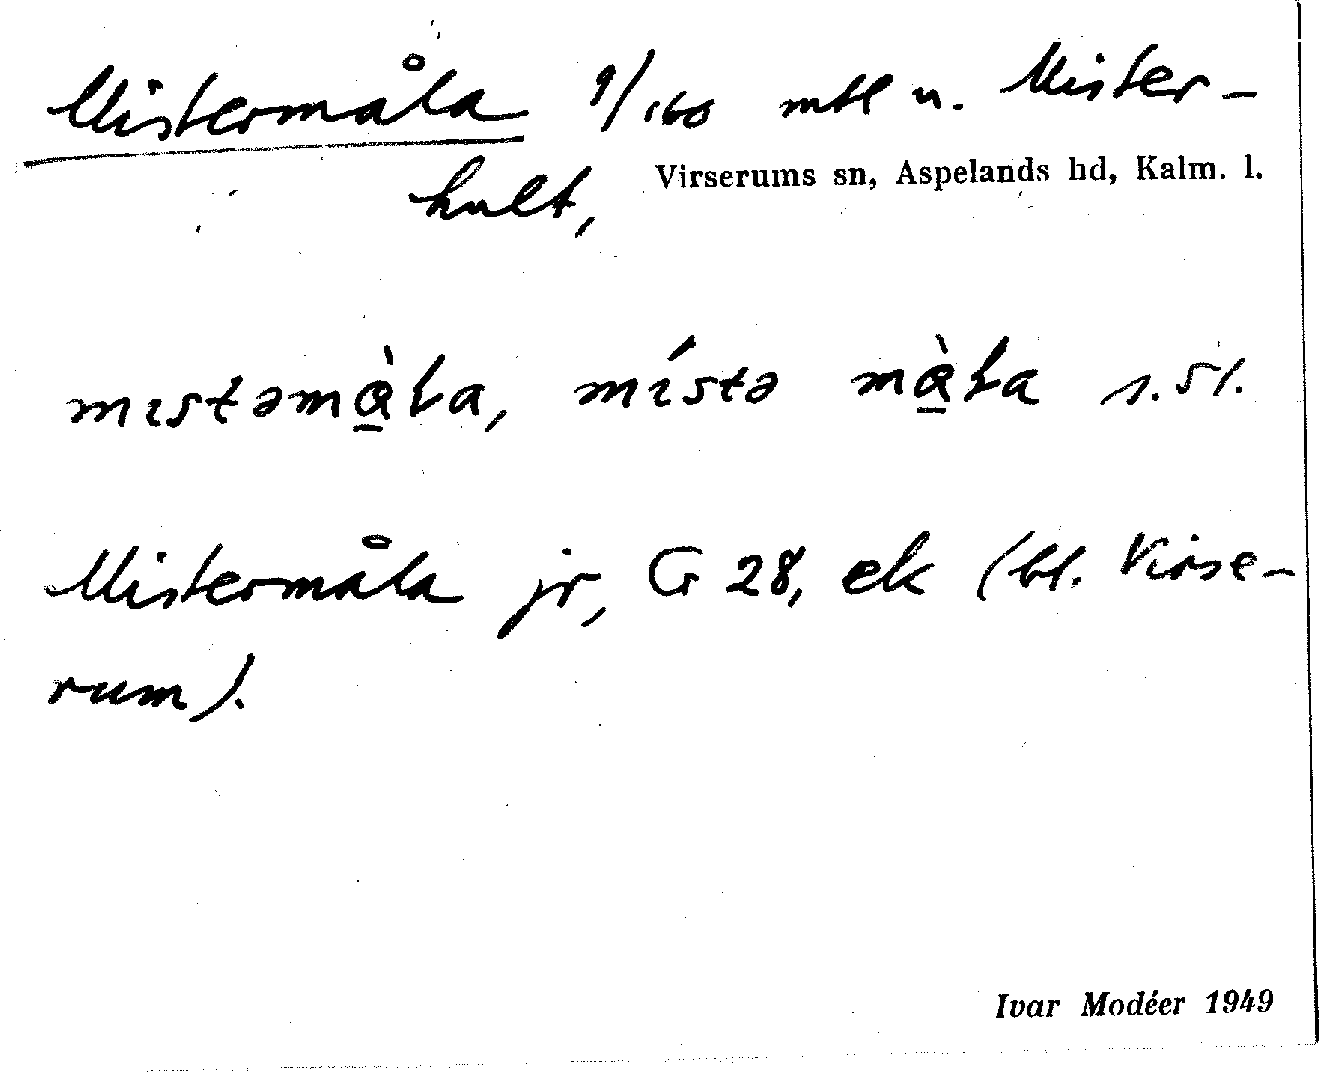 Mistermåla 9/160 mtl u. Mister-
hult,
Virserums sn, Aspelands hd, Kalm. l.
mıstəmà̱ɫa, místə mà̱ɫa s. st.
Mistermåla jr, G 28, ek (bl. Virse-
rum).
Ivar Modéer 1949